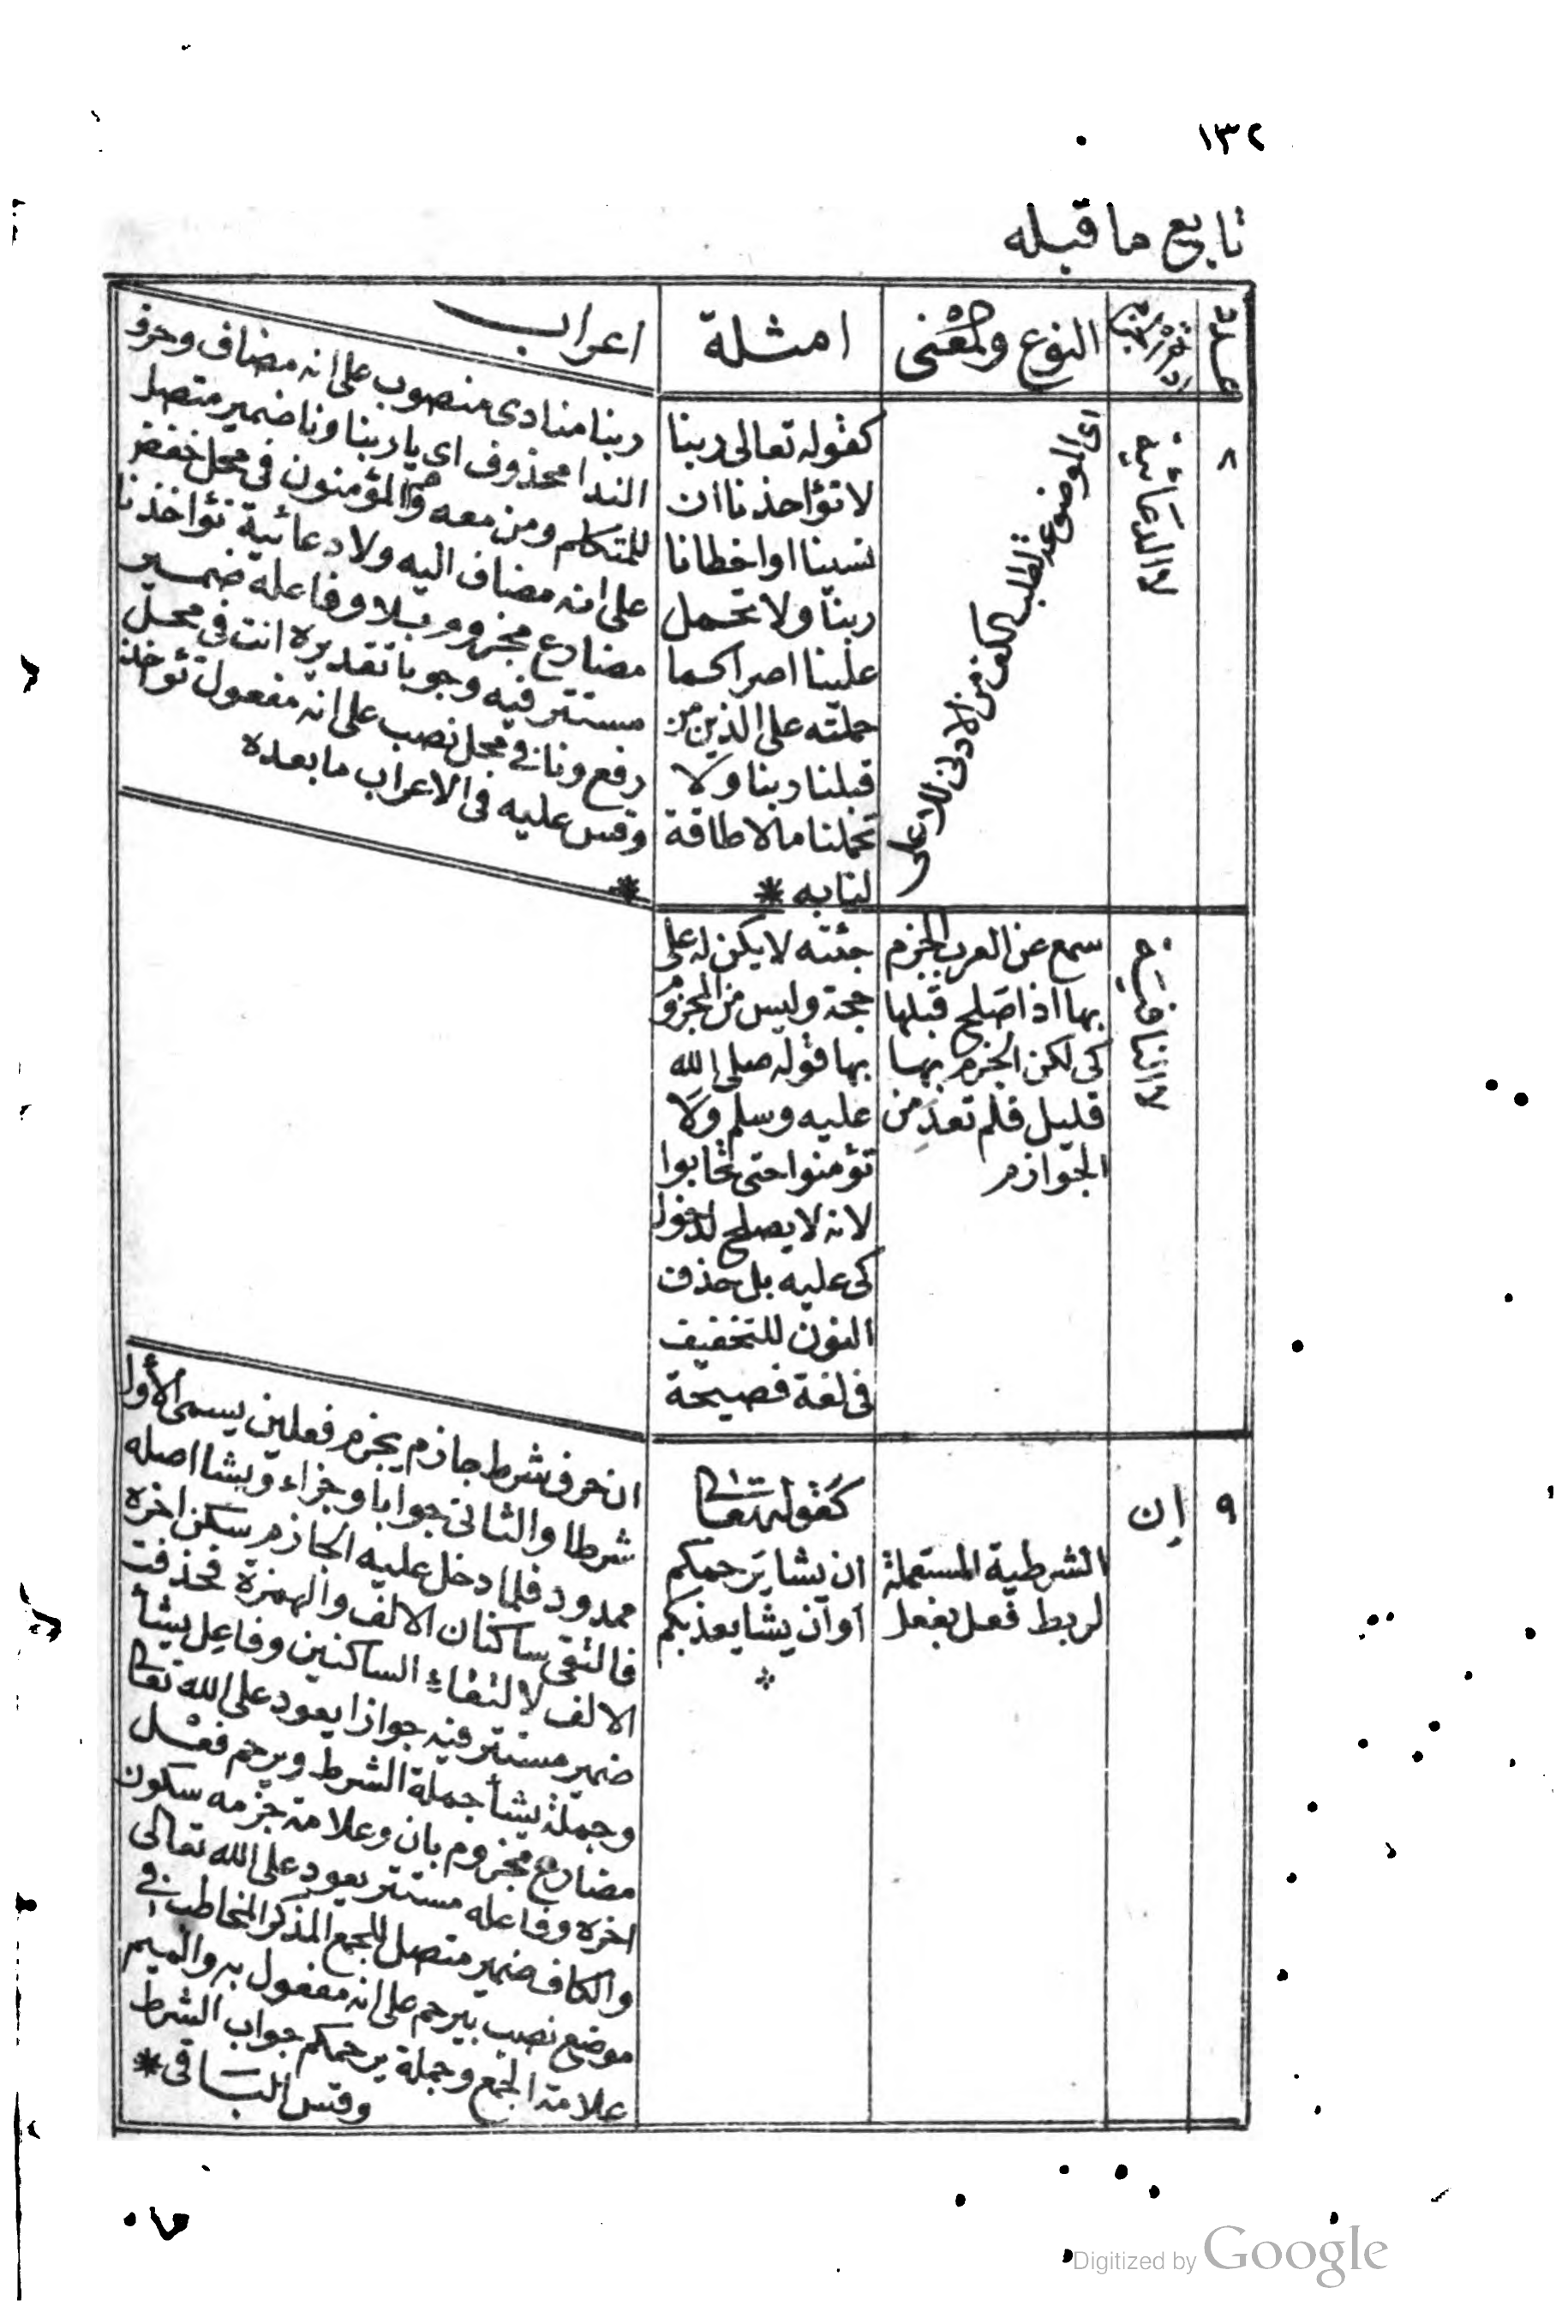 ١٣٢
تابع ماقبله
عدد
النوع والمعنى
امثلة
اعراب
٨
لا الدعائية
اى الموضوعة لطلب الكف من الادنى للاعلى
كقوله تعالى ربنا
لا تؤاخذنا ان
نسينا او اخطانا
ربنا ولا تحمل
علينا اصرا كما
حملته على الذين من
قبلنا ربنا ولا
تحملنا مالا طاقة
لنا به *
ربنا منادى منصوب على انه مضاف وحرف
الندا محذوف اى يا ربنا ونا ضمير متصل
للمتكلم ومن معه وهم المؤمنون فى محل خفض
على انه مضاف اليه ولا دعائية تؤاخذنا
مضارع مجزوم بلا وفاعله ضمير
مستتر فيه وجوبا تقديره انت فى محل
رفع ونا فى محل نصب على انه مفعول تؤاخذ
وقس عليه فى الاعراب ما بعده
*
لا النافية
سمع عن العرب الجزم
بها اذا صلح قبلها
كى لكن الجزم بها
قليل فلم تعد من
الجوازم
جئته لا يكن له على
حجة وليس من المجزوم
بها قوله صلى الله
عليه وسلم ولا
تؤمنوا حتى تحابوا
لانه لا يصلح لدخول
كى عليه بل حذفت
النون للتخفيف
فى لغة فصيحة
٩
إن
الشرطية المستعملة
لربط فعل بفعل
كقوله تعالى
ان يشا يرحمكم
او ان يشا يعذبكم
ان حرف شرط جازم يجزم فعلين يسمى الأول
شرطا والثانى جوابا وجزاء ويشا اصله
ممدود فلما دخل عليه الجازم سكن اخره
فالتقى ساكنان الالف والهمزة فحذفت
الالف لالتقاء الساكنين وفاعل يشأ
ضمير مستتر فيه جوازا يعود على الله تعالى
وجملة يشأ جملة الشرط ويرحم فعل
مضارع مجزوم بان وعلامة جزمه سكون
اخره وفاعله مستتر يعود على الله تعالى
والكاف ضمير متصل للجمع المذكر المخاطب فى
موضع نصب بيرحم على انه مفعول به والميم
علامة الجمع وجملة يرحمكم جواب الشرط
وقس الباقى *
Digitized by Google